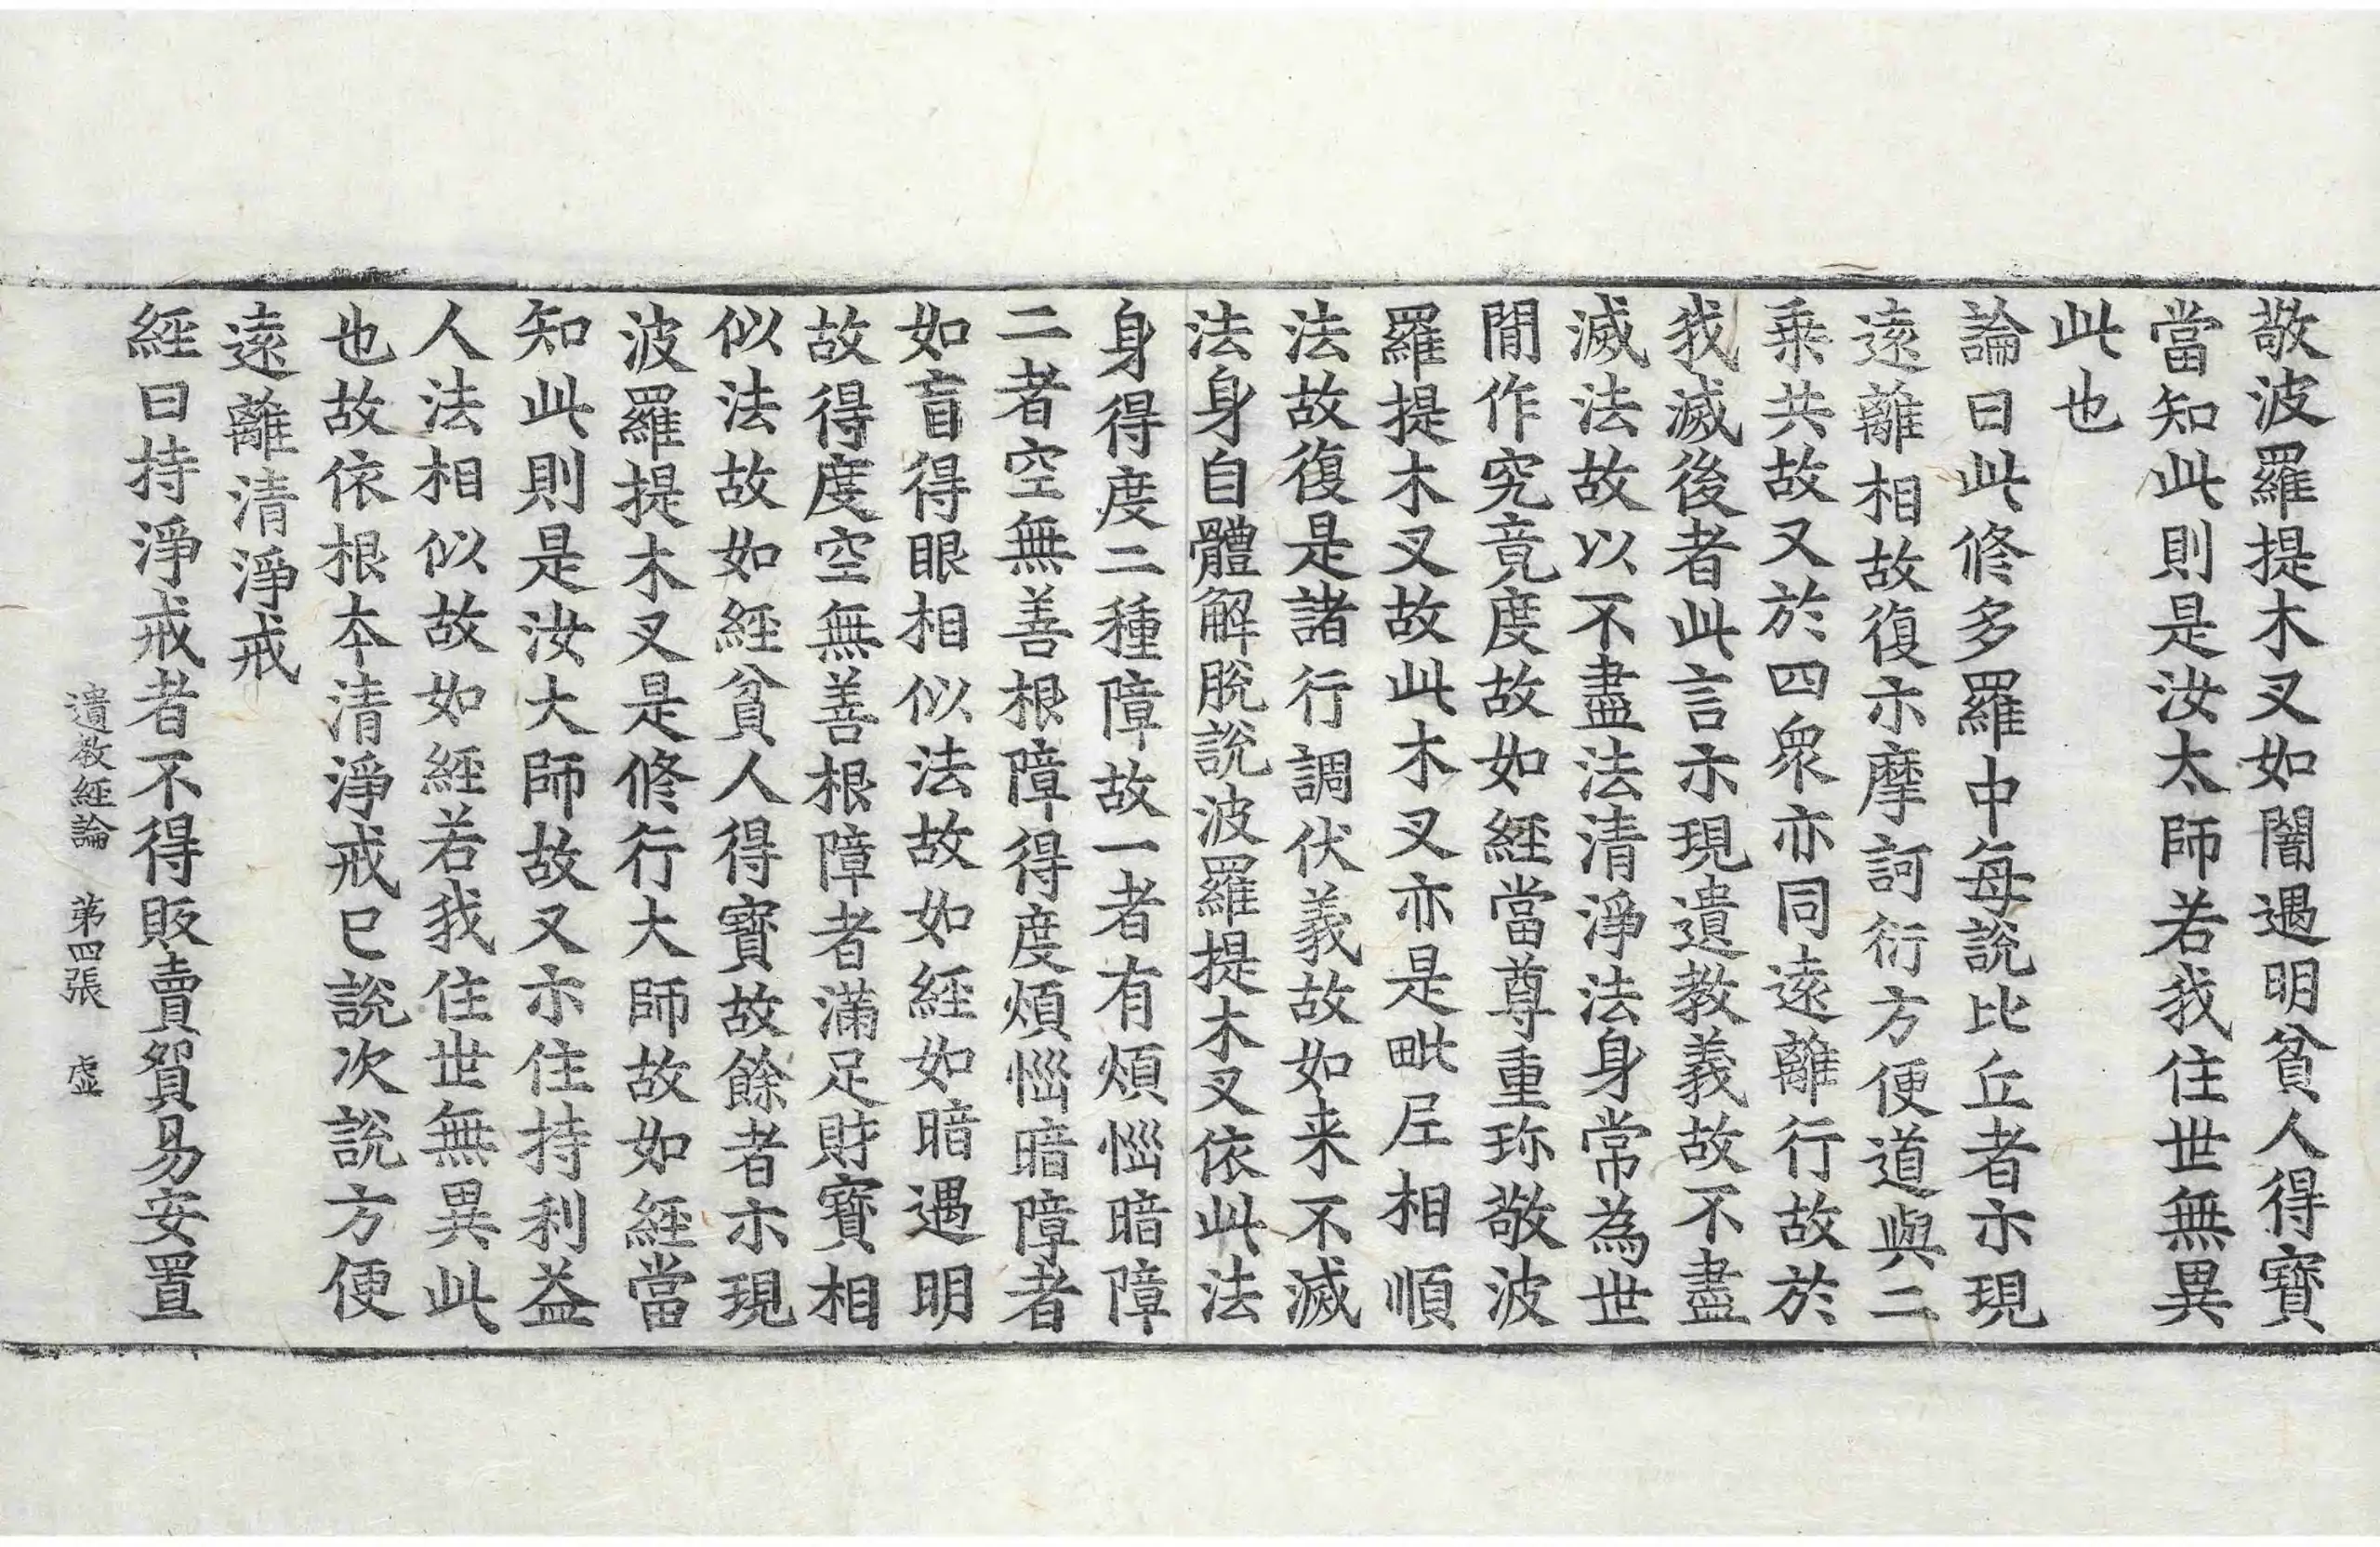 敬波羅提木叉如闇遇明貧人得寶
當知此則是汝太師若我住世無異
此也
論曰此修多羅中每說比丘者示現
遠離相故復示摩訶衍方便道與二
乗共故又於四衆亦同遠離行故於
我滅後者此言示現遺教義故不盡
滅法故以不盡法清淨法身常為世
間作究竟度故如經當尊重珎敬波
羅提木叉故此木叉亦是毗尼相順
法故復是諸行調伏義故如来不滅
法身自體解脫說波羅提木叉依此法
身得度二種障故一者有煩惱暗障
二者空無善根障得度煩惱暗障者
如盲得眼相似法故如經如暗遇明
故得度空無善根障者滿足財寶相
似法故如經貧人得寶故餘者示現
波羅提木叉是修行大師故如經當
知此則是汝大師故又示住持利益
人法相似故如經若我住世無異此
也故依根本清淨戒已說次說方便
遠離清淨戒
經曰持淨戒者不得販賣貿易安置
遺教經論 第四張 虛